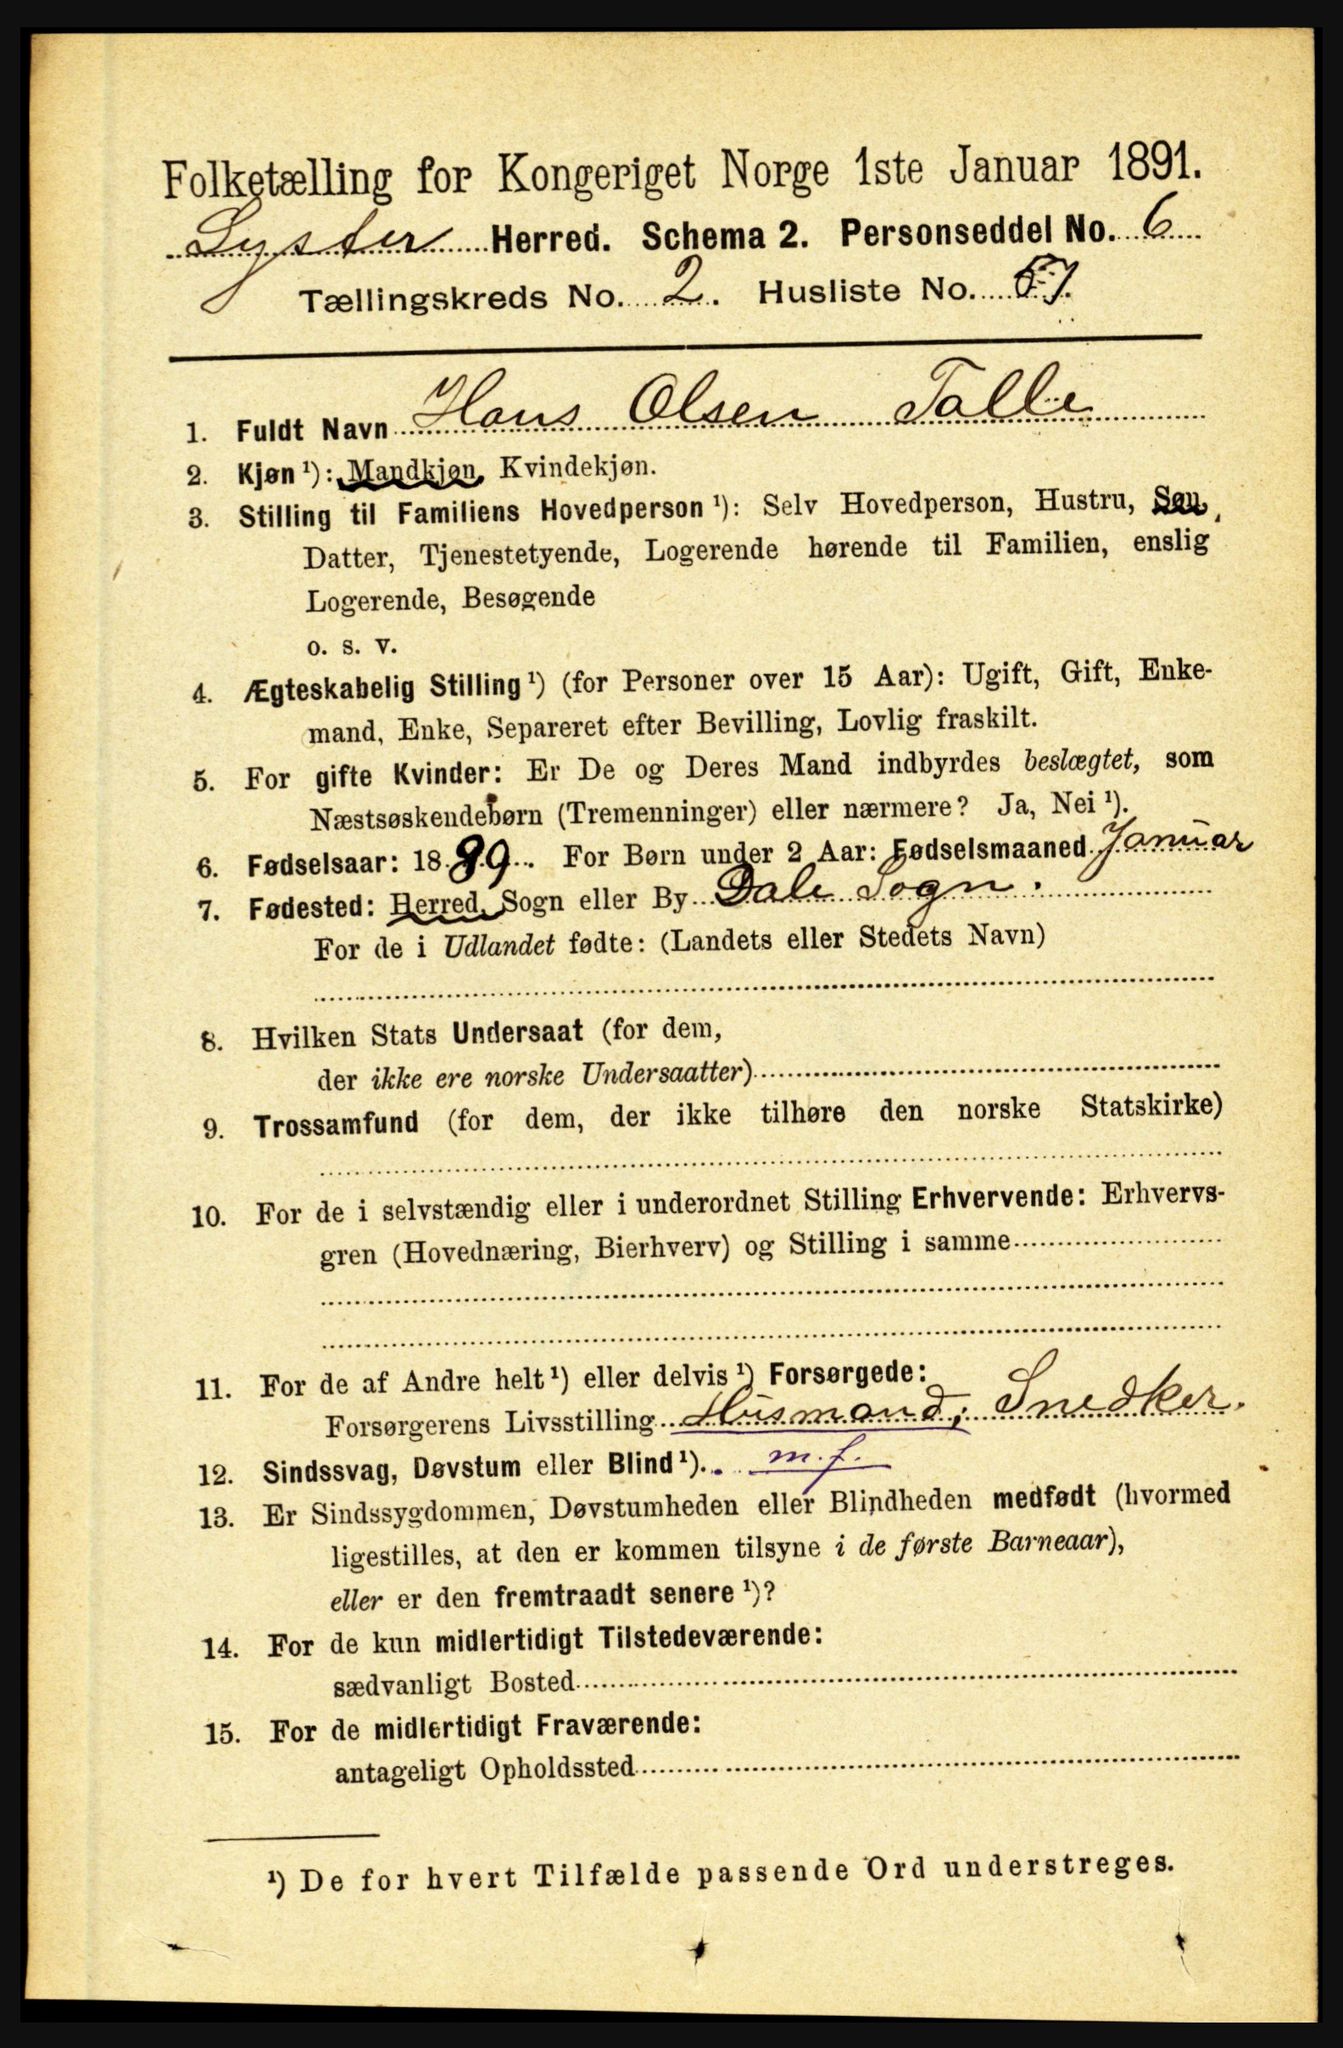 Folketælling for Kongeriget Norge 1ste Januar 1891.
Lyster Herred. Schema 2. Personseddel No. 6
Tællingskreds No. 2. Husliste No. 57.
1. Fuldt Navn Hans Olsen Talle
2. Kjøn ¹): Mandkjøn, Kvindekjøn.
3. Stilling til Familiens Hovedperson ¹): Selv Hovedperson, Hustru, Søn,
Datter, Tjenestetyende, Logerende hørende til Familien, enslig
Logerende, Besøgende
o. s. v.
4. Ægteskabelig Stilling ¹) (for Personer over 15 Aar): Ugift, Gift, Enke-
mand, Enke, Separeret efter Bevilling, Lovlig fraskilt.
5. For gifte Kvinder: Er De og Deres Mand indbyrdes beslægtet, som
Næstsøskendebørn (Tremenninger) eller nærmere? Ja, Nei ¹).
6. Fødselsaar: 1889. For Børn under 2 Aar: Fødselsmaaned Januar
7. Fødested: Herred, Sogn eller By Dale Sogn.
For de i Udlandet fødte: (Landets eller Stedets Navn)
8. Hvilken Stats Undersaat (for dem,
der ikke ere norske Undersaatter)
9. Trossamfund (for dem, der ikke tilhøre den norske Statskirke)
10. For de i selvstændig eller i underordnet Stilling Erhvervende: Erhvervs-
gren (Hovednæring, Bierhverv) og Stilling i samme
11. For de af Andre helt ¹) eller delvis ¹) Forsørgede:
Forsørgerens Livsstilling Husmand; Snedker.
12. Sindssvag, Døvstum eller Blind ¹). m. f.
13. Er Sindssygdommen, Døvstumheden eller Blindheden medfødt (hvormed
ligestilles, at den er kommen tilsyne i de første Barneaar),
eller er den fremtraadt senere ¹)?
14. For de kun midlertidigt Tilstedeværende:
sædvanligt Bosted
15. For de midlertidigt Fraværende:
antageligt Opholdssted
¹) De for hvert Tilfælde passende Ord understreges.